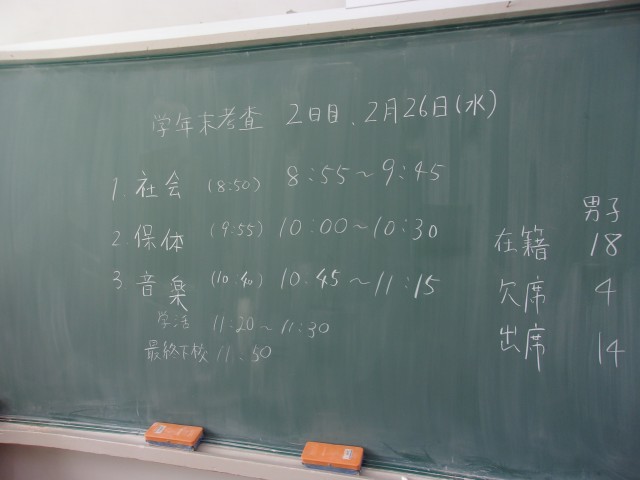 学年末考査 2日目、2月26日(水)
1. 社会 (8:50) 8:55～9:45
2. 保体 (9:55) 10:00～10:30
3. 音楽 (10:40) 10:45～11:15
学活 11:20～11:30
最終下校 11:50
男子
在籍 18
欠席 4
出席 14